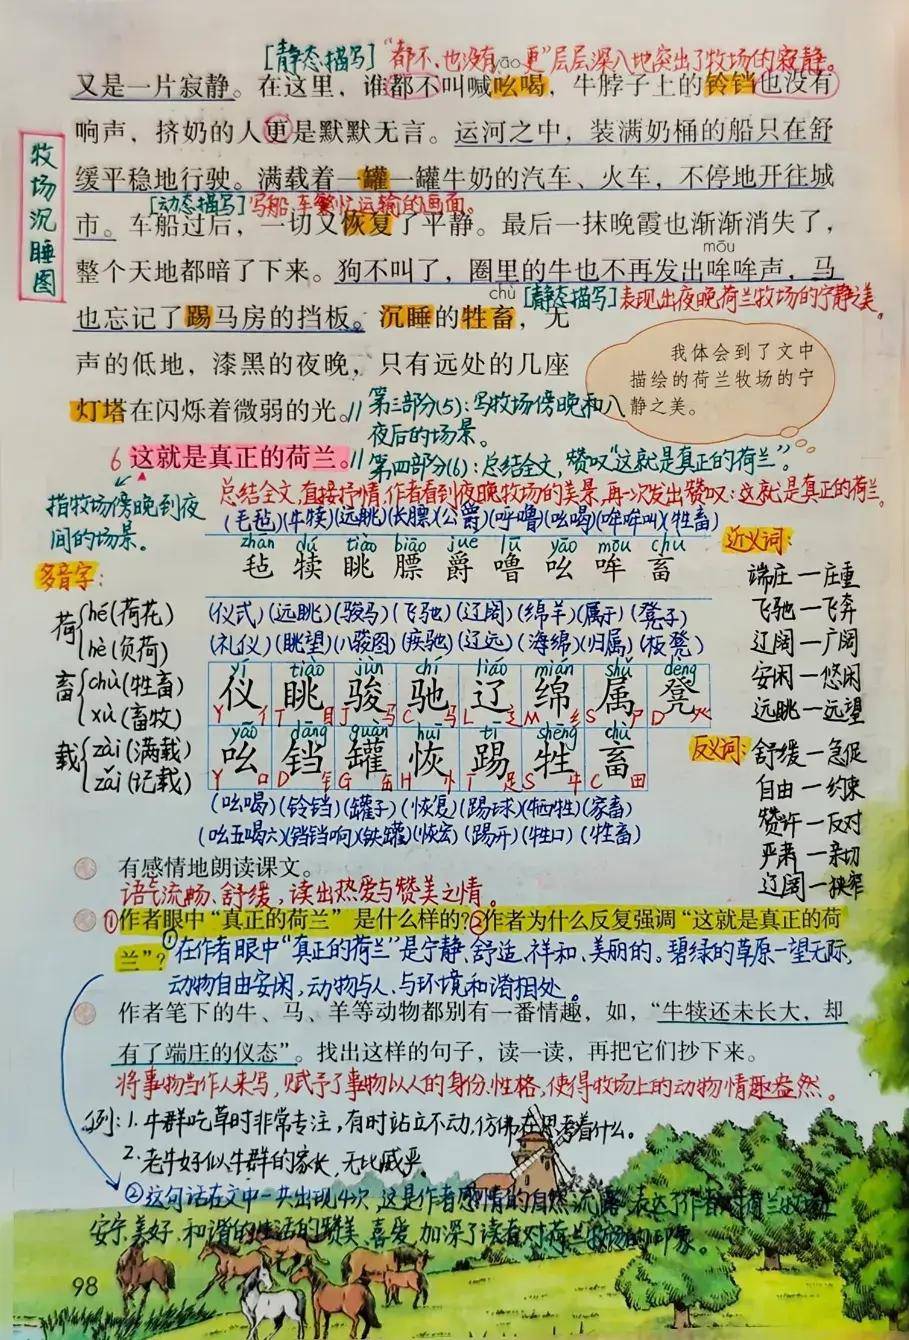 [静态描写]“都不、也没有、更”层层深入地突出了牧场的寂静。
yāo
又是一片寂静。在这里，谁都不叫喊吆喝，牛脖子上的铃铛也没有
响声，挤奶的人更是默默无言。运河之中，装满奶桶的船只在舒
缓平稳地行驶。满载着一罐一罐牛奶的汽车、火车，不停地开往城
[动态描写]写船、车繁忙运输的画面。
市。车船过后，一切又恢复了平静。最后一抹晚霞也渐渐消失了，
mōu
整个天地都暗了下来。狗不叫了，圈里的牛也不再发出哞哞声，马
chù
[静态描写]表现出夜晚荷兰牧场的宁静之美。
也忘记了踢马房的挡板。沉睡的牲畜，无
声的低地，漆黑的夜晚，只有远处的几座
灯塔在闪烁着微弱的光。
牧场沉睡图
我体会到了文中
描绘的荷兰牧场的宁
静之美。
//第三部分(5)：写牧场傍晚和入
夜后的场景。
6 这就是真正的荷兰。
//第四部分(6)：总结全文，赞叹“这就是真正的荷兰”。
指牧场傍晚到夜
间的场景。
总结全文，直接抒情，作者看到夜晚牧场的美景，再一次发出赞叹：这就是真正的荷兰。
(毛毡)(牛犊)(远眺)(长膘)(公爵)(呼噜)(吆喝)(哞哞叫)(牲畜)
zhān dú tiào biāo jué lū yāo mōu chù
毡 犊 眺 膘 爵 噜 吆 哞 畜
多音字：
荷 hé(荷花)
hè(负荷)
畜 chù(牲畜)
xù(畜牧)
载 zài(满载)
zǎi(记载)
(仪式)(远眺)(骏马)(飞驰)(辽阔)(绵羊)(属于)(凳子)
(礼仪)(眺望)(八骏图)(疾驰)(辽远)(海绵)(归属)(板凳)
yí tiào jùn chí liáo mián shǔ dèng
仪 眺 骏 驰 辽 绵 属 凳
Y 亻 T 目 J 马 C 马 L 辶 M 纟 S 尸 D 火
yāo dāng guàn huī tī shēng chù
吆 铛 罐 恢 踢 牲 畜
Y 口 D 钅 G 缶 H 忄 T 足 S 牛 C 田
(吆喝)(铃铛)(罐子)(恢复)(踢球)(牺牲)(家畜)
(吆五喝六)(铛铛响)(铁罐)(恢宏)(踢开)(牲口)(牲畜)
近义词：
端庄—庄重
飞驰—飞奔
辽阔—广阔
安闲—悠闲
远眺—远望
反义词：
舒缓—急促
自由—约束
赞许—反对
严肃—亲切
辽阔—狭窄
有感情地朗读课文。
语气流畅、舒缓，读出热爱与赞美之情。
①作者眼中“真正的荷兰”是什么样的?②作者为什么反复强调“这就是真正的荷
兰”?
①在作者眼中“真正的荷兰”是宁静、舒适、祥和、美丽的。碧绿的草原一望无际，
动物自由安闲，动物与人、与环境和谐相处。
作者笔下的牛、马、羊等动物都别有一番情趣，如，“牛犊还未长大，却
有了端庄的仪态”。找出这样的句子，读一读，再把它们抄下来。
将事物当作人来写，赋予了事物以人的身份、性格，使得牧场上的动物情趣盎然。
例：1.牛群吃草时非常专注，有时站立不动，仿佛在思考着什么。
2.老牛好似牛群的家长，无比威严。
②这句话在文中一共出现4次，这是作者感情的自然流露，表达了作者对荷兰牧场上
安宁、美好、和谐的生活的赞美、喜爱，加深了读者对荷兰牧场的印象。
98